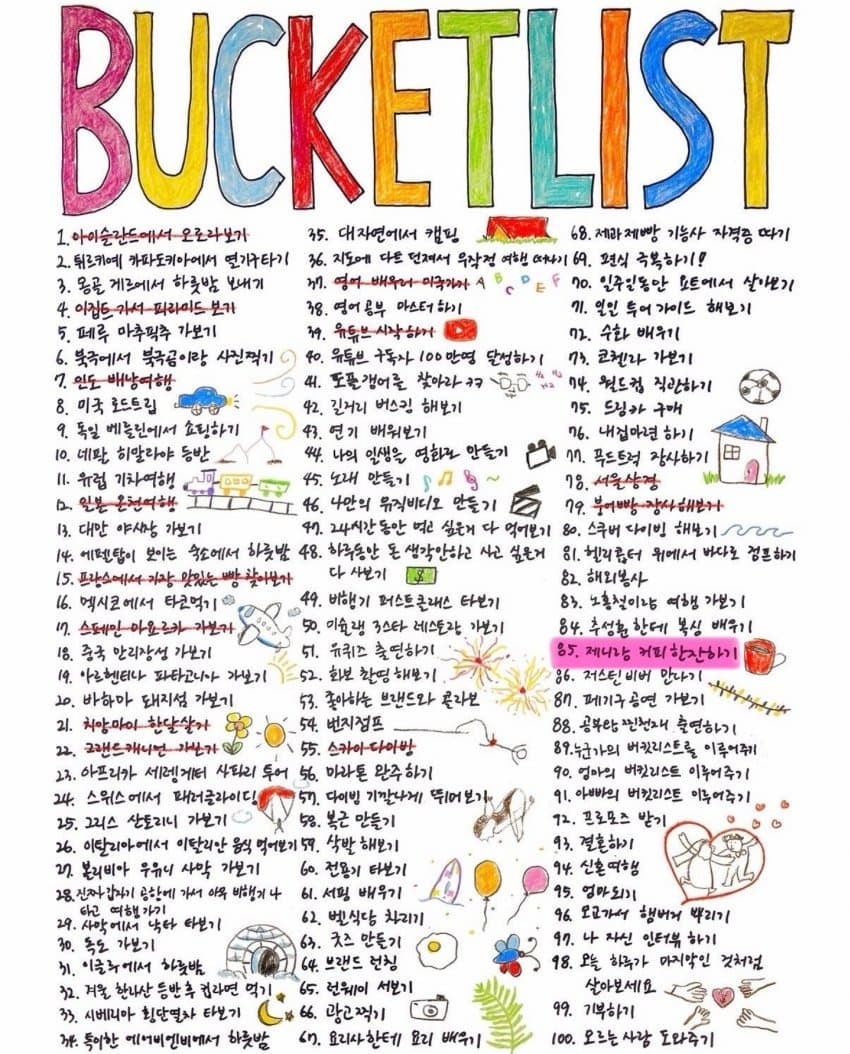 BUCKETLIST
1. 아이슬란드에서 오로라보기
2. 튀르키예 카파도키아에서 열기구타기
3. 몽골 게르에서 하룻밤 보내기
4. 이집트 가서 피라미드 보기
5. 페루 마추픽추 가보기
6. 북극에서 북극곰이랑 사진찍기
7. 인도 배낭여행
8. 미국 로드트립
9. 독일 베를린에서 쇼핑하기
10. 네팔 히말라야 등반
11. 유럽 기차여행
12. 일본 온천여행
13. 대만 야시장 가보기
14. 에펠탑이 보이는 숙소에서 하룻밤
15. 프랑스에서 가장 맛있는 빵 찾아보기
16. 멕시코에서 타코먹기
17. 스페인 마요르카 가보기
18. 중국 만리장성 가보기
19. 아르헨티나 파타고니아 가보기
20. 바하마 돼지섬 가보기
21. 치앙마이 한달살기
22. 그랜드캐니언 가보기
23. 아프리카 세렝게티 사파리 투어
24. 스위스에서 패러글라이딩
25. 그리스 산토리니 가보기
26. 이탈리아에서 이탈리안 음식 먹어보기
27. 볼리비아 우유니 사막 가보기
28. 진짜 갑자기 공항에 가서 아무 비행기나
타고 여행가기
29. 사막에서 낙타 타보기
30. 독도 가보기
31. 이글루에서 하룻밤
32. 겨울 한라산 등반 후 컵라면 먹기
33. 시베리아 횡단열차 타보기
34. 특이한 에어비엔비에서 하룻밤
35. 대자연에서 캠핑
36. 지도에 다트 던져서 무작정 여행 떠나기
37. 영어 배우러 미국가기 A B C D E F
38. 영어공부 마스터하기
39. 유튜브 시작하기
40. 유튜브 구독자 100만명 달성하기
41. 도플갱어를 찾아라 ㅋㅋ
42. 길거리 버스킹 해보기
43. 연기 배워보기
44. 나의 인생을 영화로 만들기
45. 노래 만들기
46. 나만의 뮤직비디오 만들기
47. 24시간동안 먹고 싶은거 다 먹어보기
48. 하루동안 돈 생각안하고 사고 싶은거
다 사보기 $
49. 비행기 퍼스트클래스 타보기
50. 미슐랭 3스타 레스토랑 가보기
51. 유퀴즈 출연하기
52. 화보 촬영 해보기
53. 좋아하는 브랜드와 콜라보
54. 번지점프
55. 스카이다이빙
56. 마라톤 완주하기
57. 다이빙 기깔나게 뛰어보기
58. 복근 만들기
59. 삭발 해보기
60. 전용기 타보기
61. 서핑 배우기
62. 벨식당 차리기
63. 굿즈 만들기
64. 브랜드 런칭
65. 런웨이 서보기
66. 광고찍기
67. 요리사한테 요리 배우기
68. 제과제빵 기능사 자격증 따기
69. 편식 극복하기!
70. 일주일동안 요트에서 살아보기
71. 일일 투어가이드 해보기
72. 수화 배우기
73. 코첼라 가보기
74. 월드컵 직관하기
75. 드림카 구매
76. 내집마련 하기
77. 푸드트럭 장사하기
78. 서울상경
79. 붕어빵 장사해보기
80. 스쿠버 다이빙 해보기
81. 헬리콥터 위에서 바다로 점프하기
82. 해외봉사
83. 노홍철이랑 여행 가보기
84. 추성훈한테 복싱 배우기
85. 제니랑 커피한잔하기
86. 저스틴비버 만나기
87. 페기구 공연 가보기
88. 공부왕찐천재 출연하기
89. 누군가의 버킷리스트를 이루어주기
90. 엄마의 버킷리스트 이루어주기
91. 아빠의 버킷리스트 이루어주기
92. 프로포즈 받기
93. 결혼하기
94. 신혼여행
95. 엄마되기
96. 모교가서 햄버거 뿌리기
97. 나 자신 인터뷰 하기
98. 오늘 하루가 마지막인 것처럼
살아보세요
99. 기부하기
100. 모르는사람 도와주기